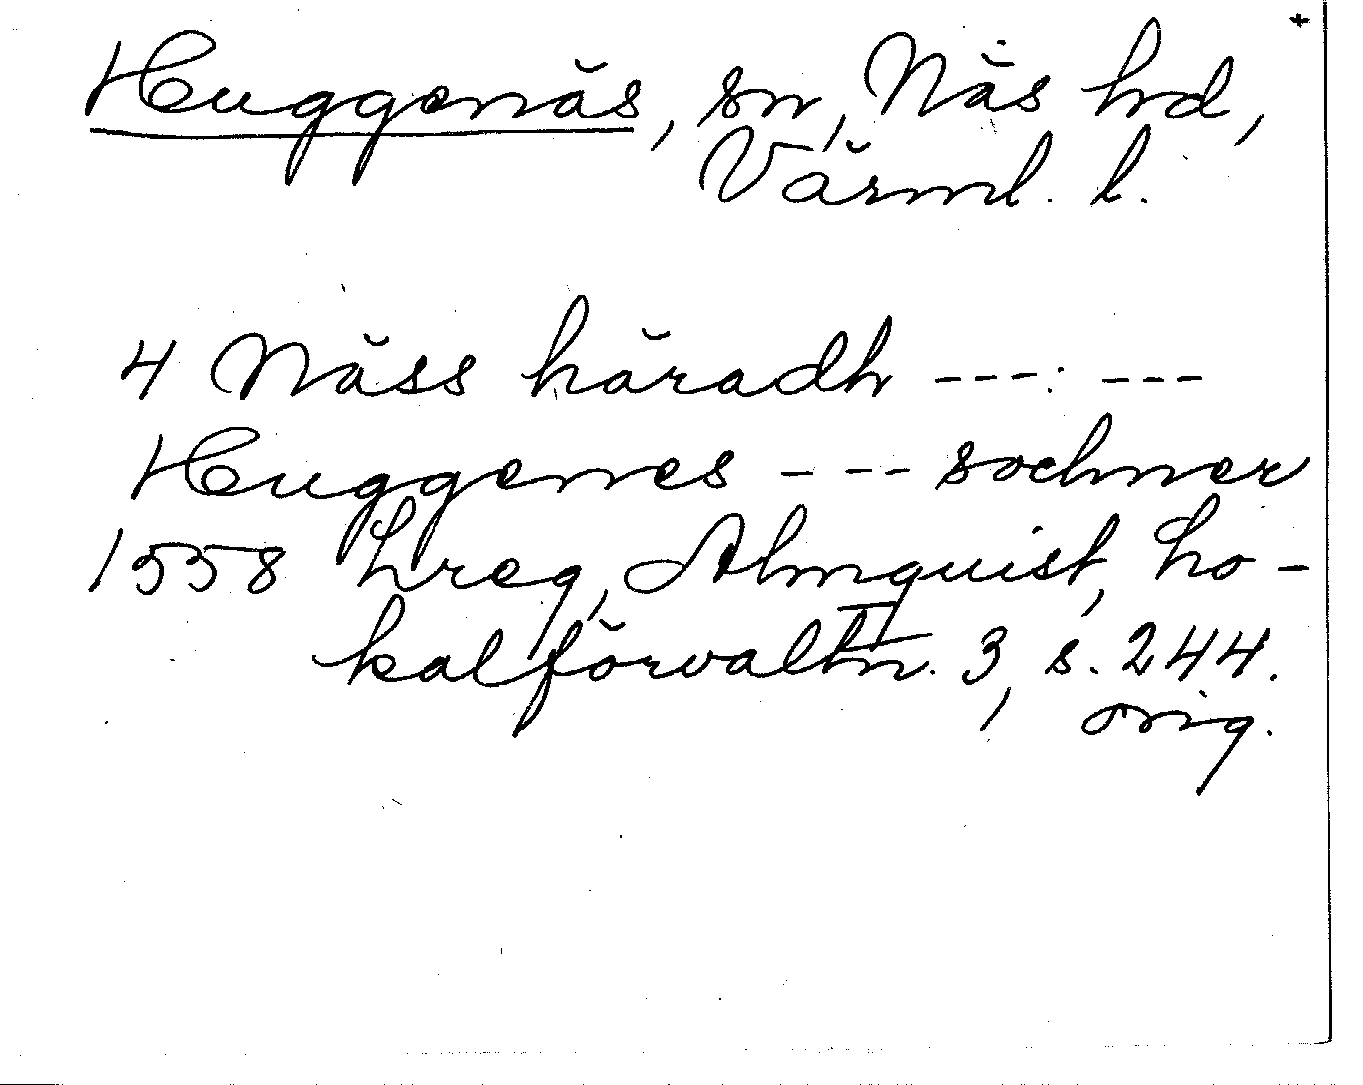 Huggenäs, sn, Näs hd,
Värml. l.
4 Näss häradh ---:---
Huggenes --- sochner
1558 Lreg, Almquist, Lo-
kalförvaltn. II 3, s. 244.
, orig.